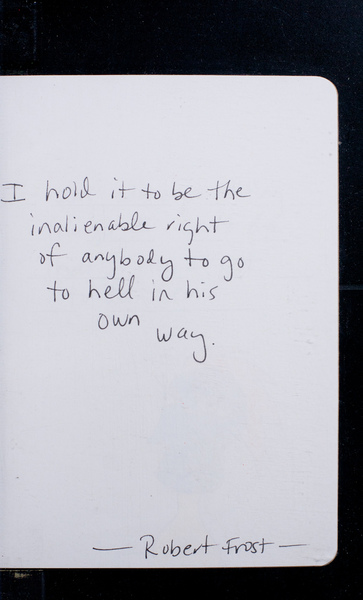 I hold it to be the
inalienable right
of anybody to go
to hell in his
own way.
— Robert Frost —